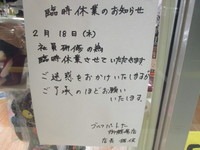 臨時休業のお知らせ
2月18日(木)
社員研修の為
臨時休業させていただきます
ご迷惑をおかけいたしますが
ご了承のほどお願い
いたします。
店長